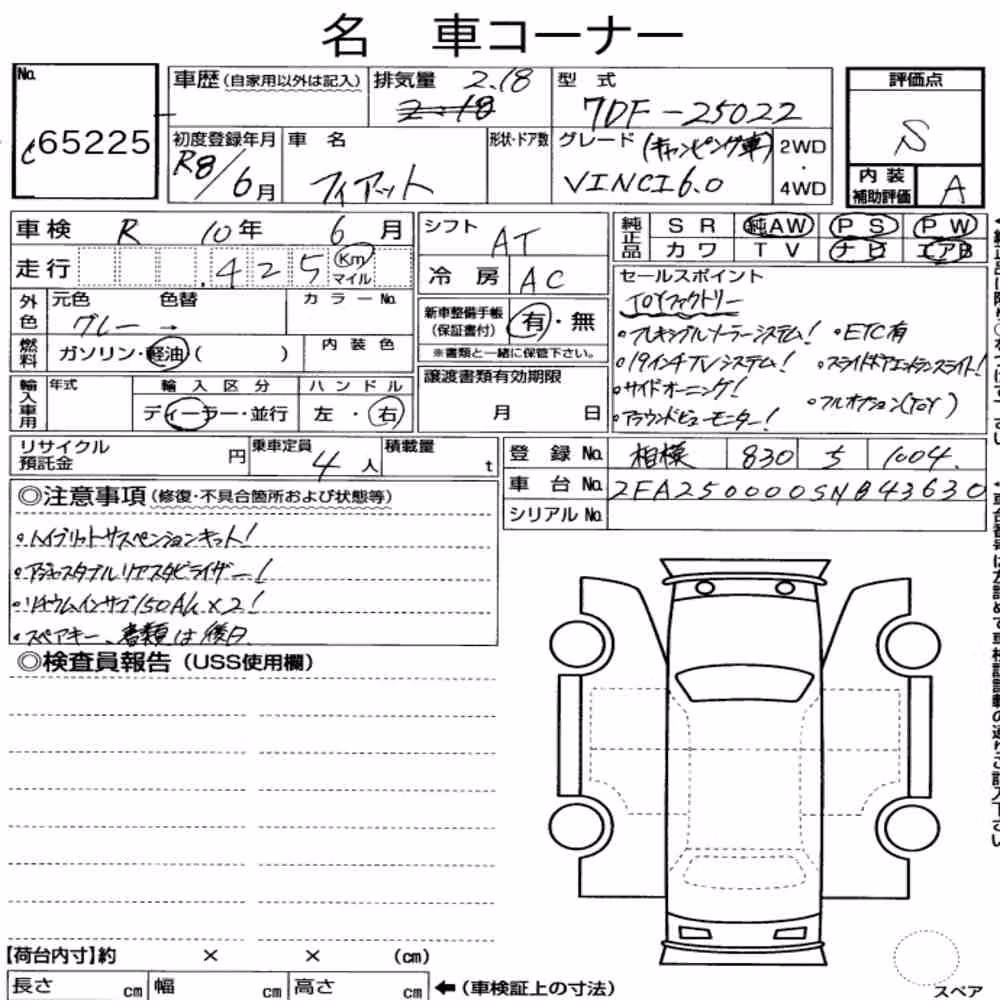 名 車コーナー
No.
c65225
車歴(自家用以外は記入)
排気量 2.18
2.18
型式
7DF-25022
評価点
S
内装補助評価 A
初度登録年月
R8/6月
車名
フィアット
形状・ドア数
グレード (キャンピング車)
VINCI6.0
2WD
・
4WD
車検 R 10年 6月
走行 425 Km マイル
外色 元色 色替 カラーNo.
グレー →
燃料 ガソリン・軽油( ) 内装色
輸入車用 年式 輸入区分 ハンドル
ディーラー・並行 左・右
シフト AT
冷房 AC
新車整備手帳(保証書付) 有・無
※書類と一緒に保管下さい。
譲渡書類有効期限
月 日
純正品 SR 純AW PS PW
カワ TV ナビ エアB
セールスポイント
TOYファクトリー
・フレキシブルソーラーシステム! ・ETC有
・19インチTVシステム! ・スライドドアエントランスライト!
・サイドオーニング!
・フルオプション(TOY)
・アラウンドビューモニター!
リサイクル預託金 円
乗車定員 4人
積載量 t
登録No. 相模 830 う 1004
車台No. ZFA250000SMB43630
シリアルNo.
◎注意事項(修復・不具合箇所および状態等)
・ハイブリットサスペンションキット!
・アジャスタブルリアスタビライザー!
・リチウムインサブ150Ah×2!
・スペアキー、書類は後日
◎検査員報告(USS使用欄)
【荷台内寸】約 × × (cm)
長さ cm 幅 cm 高さ cm ←(車検証上の寸法)
スペア